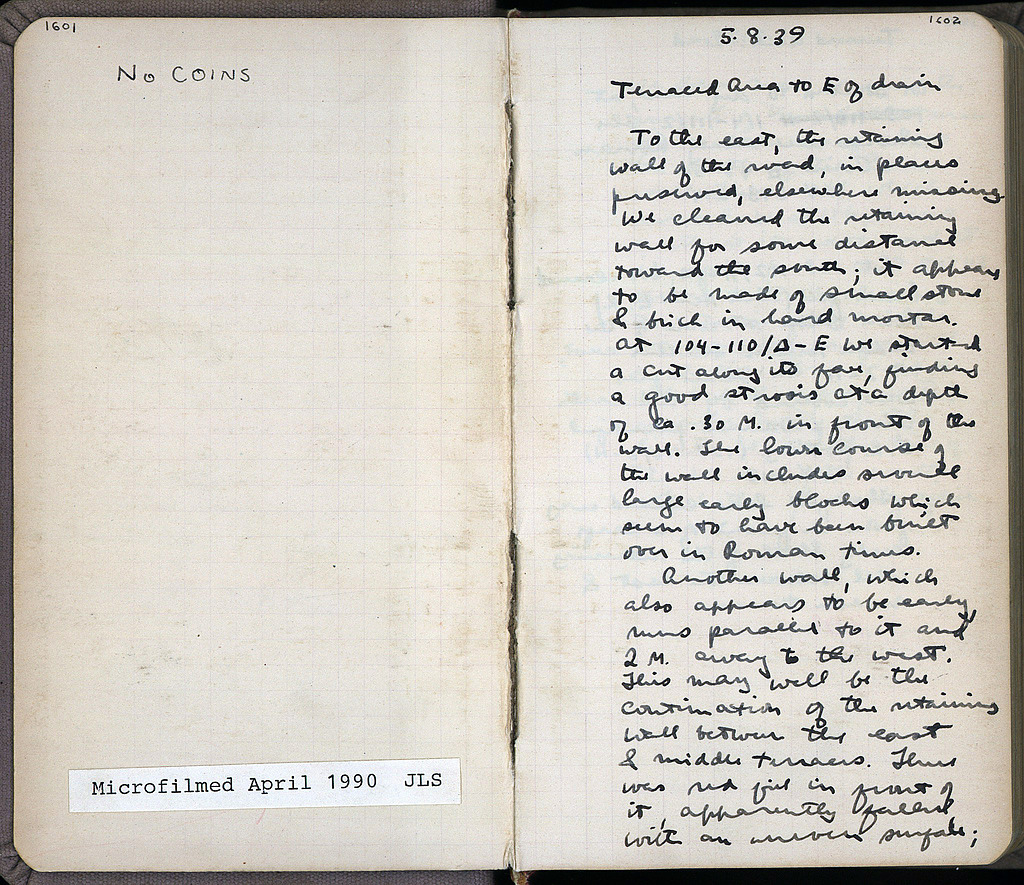 1601
No COINS
Microfilmed April 1990 JLS
1602
5.8.39
Terraced Area to E of drain
To the east, the retaining
wall of the road, in places
preserved, elsewhere missing.
We cleaned the retaining
wall for some distance
toward the south; it appears
to be made of small stone
& brick in hard mortar.
At 104-110/Δ-E we started
a cut along its face, finding
a good strosis at a depth
of ca .30 M. in front of the
wall. The lower course of
the wall includes several
large early blocks which
seem to have been built
over in Roman times.
Another wall, which
also appears to be early,
runs parallel to it and
2 M. away to the west.
This may well be the
continuation of the retaining
wall between the east
& middle terraces. There
was red fill in front of
it, apparently
with an uneven surface;